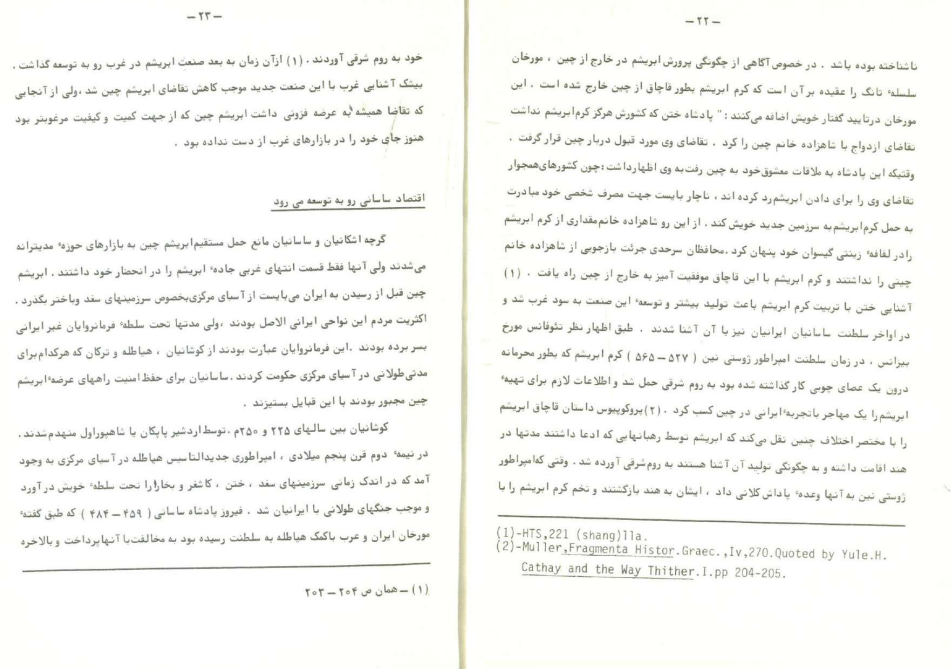 — ۲۲ —
ناشناخته بوده باشد . در خصوص آگاهی از چگونگی پرورش ابریشم در خارج از چین ، مورخان
سلسلهٔ تانگ را عقیده بر آن است که کرم ابریشم بطور قاچاق از چین خارج شده است . این
مورخان درتایید گفتار خویش اضافه می‌کنند : " پادشاه ختن که کشورش هرگز کرم ابریشم نداشت
تقاضای ازدواج با شاهزاده خانم چین را کرد . تقاضای وی مورد قبول دربار چین قرار گرفت .
وقتیکه این پادشاه به ملاقات معشوق خود به چین رفت به وی اظهار داشت : چون کشورهای همجوار
تقاضای وی را برای دادن ابریشم رد کرده اند ، ناچار بایست جهت مصرف شخصی خود مبادرت
به حمل کرم ابریشم به سرزمین جدید خویش کند . از این رو شاهزاده خانم مقداری از کرم ابریشم
رادر لفافهٔ زینتی گیسوان خود پنهان کرد . محافظان سرحدی جرئت بازجویی از شاهزاده خانم
چینی را نداشتند و کرم ابریشم با این قاچاق موفقیت آمیز به خارج از چین راه یافت . (۱)
آشنایی ختن با تربیت کرم ابریشم باعث تولید بیشتر و توسعهٔ این صنعت به سود غرب شد و
در اواخر سلطنت ساسانیان ایرانیان نیز با آن آشنا شدند . طبق اظهار نظر تئوفانس مورخ
بیزانس ، در زمان سلطنت امپراطور ژوستی نین ( ۵۲۷ – ۵۶۵ ) کرم ابریشم که بطور محرمانه
درون یک عصای چوبی کار گذاشته شده بود به روم شرقی حمل شد و اطلاعات لازم برای تهیهٔ
ابریشم را یک مهاجر باتجربهٔ ایرانی در چین کسب کرد . (۲) پروکوپیوس داستان قاچاق ابریشم
را با مختصر اختلاف چنین نقل می‌کند که ابریشم توسط رهبانهایی که ادعا داشتند مدتها در
هند اقامت داشته و به چگونگی تولید آن آشنا هستند به روم شرقی آورده شد . وقتی که امپراطور
ژوستی نین به آنها وعدهٔ پاداش کلانی داد ، ایشان به هند بازگشتند و تخم کرم ابریشم را با
(1)-HTS,221 (shang)11a.
(2)-Muller,Fragmenta Histor.Graec.,Iv,270.Quoted by Yule.H.
Cathay and the Way Thither.I.pp 204-205.
— ۲۳ —
خود به روم شرقی آوردند . (۱) ازآن زمان به بعد صنعت ابریشم در غرب رو به توسعه گذاشت .
بیشک آشنایی غرب با این صنعت جدید موجب کاهش تقاضای ابریشم چین شد ،ولی از آنجایی
که تقاضا همیشه به عرضه فزونی داشت ابریشم چین که از جهت کمیت و کیفیت مرغوبتر بود
هنوز جای خود را در بازارهای غرب از دست نداده بود .
اقتصاد ساسانی رو به توسعه می رود
گرچه اشکانیان و ساسانیان مانع حمل مستقیم ابریشم چین به بازارهای حوزهٔ مدیترانه
می‌شدند ولی آنها فقط قسمت انتهای غربی جادهٔ ابریشم را در انحصار خود داشتند . ابریشم
چین قبل از رسیدن به ایران می‌بایست از آسیای مرکزی بخصوص سرزمینهای سغد و باختر بگذرد .
اکثریت مردم این نواحی ایرانی الاصل بودند ،ولی مدتها تحت سلطهٔ فرمانروایان غیر ایرانی
بسر برده بودند .این فرمانروایان عبارت بودند از کوشانیان ، هیاطله و ترکان که هرکدام برای
مدتی طولانی در آسیای مرکزی حکومت کردند . ساسانیان برای حفظ امنیت راههای عرضهٔ ابریشم
چین مجبور بودند با این قبایل بستیزند .
کوشانیان بین سالهای ۲۲۵ و ۲۵۰م .توسط اردشیر پاپکان یا شاهپوراول منهدم شدند .
در نیمهٔ دوم قرن پنجم میلادی ، امپراطوری جدیدالتاسیس هیاطله در آسیای مرکزی به وجود
آمد که در اندک زمانی سرزمینهای سغد ، ختن ، کاشغر و بخارا را تحت سلطهٔ خویش در آورد
و موجب جنگهای طولانی با ایرانیان شد . فیروز پادشاه ساسانی ( ۴۵۹ – ۴۸۴ ) که طبق گفتهٔ
مورخان ایران و عرب باکمک هیاطله به سلطنت رسیده بود به مخالفت با آنها پرداخت و بالاخره
(۱) – همان ص ۲۰۴ – ۲۰۳